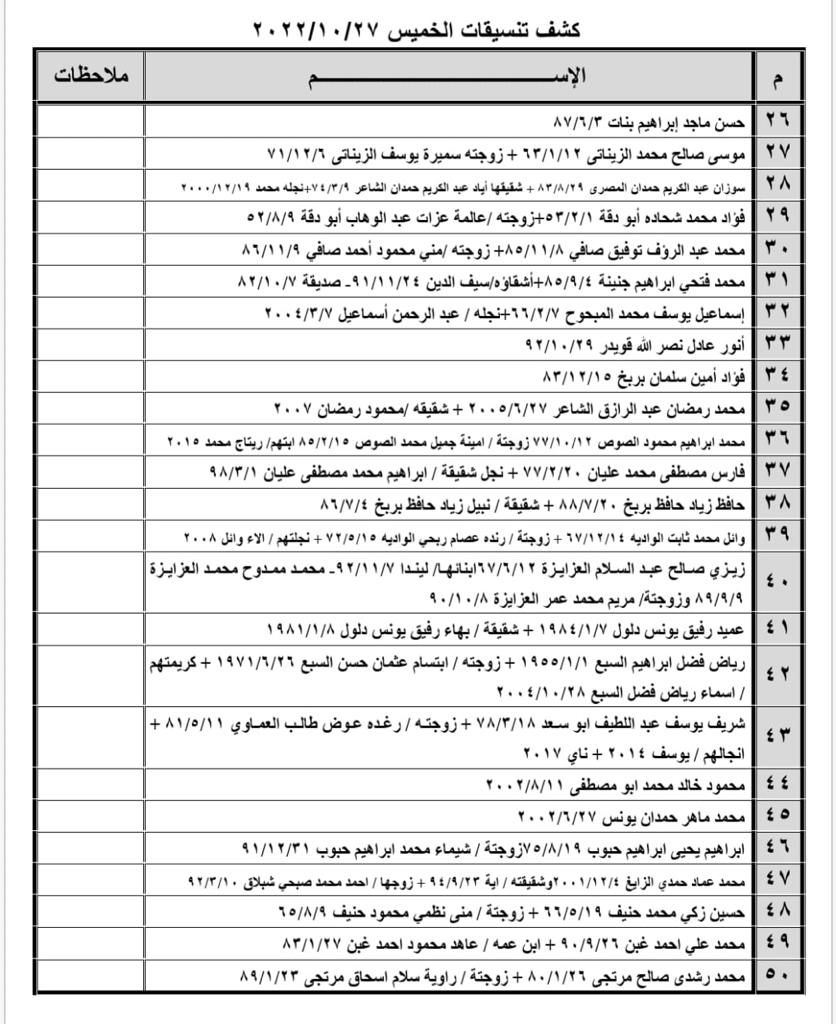 كشف تنسيقات الخميس ٢٠٢٢/١٠/٢٧
م الإســـــــــــم ملاحظات
٢٦ حسن ماجد إبراهيم بنات ٨٧/٦/٣
٢٧ موسى صالح محمد الزيناتى ٦٣/١/١٢ + زوجته سميرة يوسف الزيناتى ٧١/١٢/٦
٢٨ سوزان عبد الكريم حمدان المصرى ٨٣/٨/٢٩ + شقيقها أياد عبد الكريم حمدان الشاعر ٧٤/٣/٩+نجله محمد ٢٠٠٠/١٢/١٩
٢٩ فؤاد محمد شحاده أبو دقة ٥٣/٢/١+زوجته /عالمة عزات عبد الوهاب أبو دقة ٥٢/٨/٩
٣٠ محمد عبد الرؤف توفيق صافي ٨٥/١١/٨+ زوجته /مني محمود أحمد صافي ٨٦/١١/٩
٣١ محمد فتحي ابراهيم جنينة ٨٥/٩/٤+أشقاؤه/سيف الدين ٩١/١١/٢٤- صديقة ٨٢/١٠/٧
٣٢ إسماعيل يوسف محمد المبحوح ٦٦/٢/٧+نجله / عبد الرحمن أسماعيل ٢٠٠٤/٣/٧
٣٣ أنور عادل نصر الله قويدر ٩٢/١٠/٢٩
٣٤ فؤاد أمين سلمان بربخ ٨٣/١٢/١٥
٣٥ محمد رمضان عبد الرازق الشاعر ٢٠٠٥/٦/٢٧ + شقيقه /محمود رمضان ٢٠٠٧
٣٦ محمد ابراهيم محمود الصوص ٧٧/١٠/١٢ زوجتة / امينة جميل محمد الصوص ٨٥/٢/١٥ ابتهم/ ريتاج محمد ٢٠١٥
٣٧ فارس مصطفى محمد عليان ٧٧/٢/٢٠ + نجل شقيقة / ابراهيم محمد مصطفى عليان ٩٨/٣/١
٣٨ حافظ زياد حافظ بربخ ٨٨/٧/٢٠ + شقيقة / نبيل زياد حافظ بربخ ٨٦/٧/٤
٣٩ وائل محمد ثابت الواديه ٦٧/١٢/١٤ + زوجتة / رنده عصام ربحي الواديه ٧٢/٥/١٥ + نجلتهم / الاء وائل ٢٠٠٨
٤٠ زيزي صالح عبد السلام العزايزة ٦٧/٦/١٢ابنائها/ ليندا ٩٢/١١/٧- محمد ممدوح محمد العزايزة
٨٩/٩/٩ وزوجتة/ مريم محمد عمر العزايزة ٩٠/١٠/٨
٤١ عميد رفيق يونس دلول ١٩٨٤/١/٧ + شقيقة / بهاء رفيق يونس دلول ١٩٨١/١/٨
٤٢ رياض فضل ابراهيم السبع ١٩٥٥/١/١ + زوجته / ابتسام عثمان حسن السبع ١٩٧١/٦/٢٦ + كريمتهم
/ اسماء رياض فضل السبع ٢٠٠٤/١٠/٢٨
٤٣ شريف يوسف عبد اللطيف ابو سعد ٧٨/٣/١٨ + زوجته / رغده عوض طالب العماوي ٨١/٥/١١ +
انجالهم / يوسف ٢٠١٤ + ناي ٢٠١٧
٤٤ محمود خالد محمد ابو مصطفى ٢٠٠٢/٨/١١
٤٥ محمد ماهر حمدان يونس ٢٠٠٢/٦/٢٧
٤٦ ابراهيم يحيى ابراهيم حبوب ٧٥/٨/١٩زوجتة / شيماء محمد ابراهيم حبوب ٩١/١٢/٣١
٤٧ محمد عماد حمدي الزايغ ٢٠٠١/١٢/٤وشقيقته / اية ٩٤/٩/٢٣ + زوجها / احمد محمد صبحي شبلاق ٩٢/٣/١٠
٤٨ حسين زكي محمد حنيف ٦٦/٥/١٩ + زوجتة / منى نظمي محمود حنيف ٦٥/٨/٩
٤٩ محمد علي احمد غبن ٩٠/٩/٢٦ + ابن عمه / عاهد محمود احمد غبن ٨٣/١/٢٧
٥٠ محمد رشدى صالح مرتجى ٨٠/١/٢٦ + زوجتة / راوية سلام اسحاق مرتجى ٨٩/١/٢٣